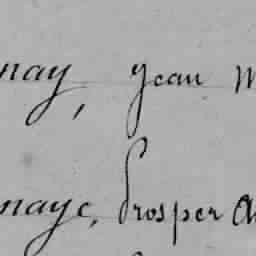 nay, Jean M
naye, Prosper A